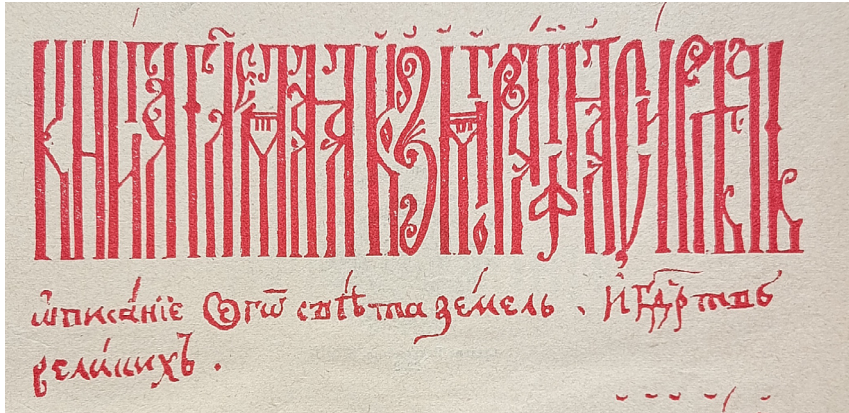 КНИГА ГЛ҃ЕМАѦ КОЗМОГРАФІА СИРѢЧЬ
ѡ҆писа́нїе сегѡ̀ свѣ́та земе́ль . и҆ гдр҃твъ
вели́кихъ .